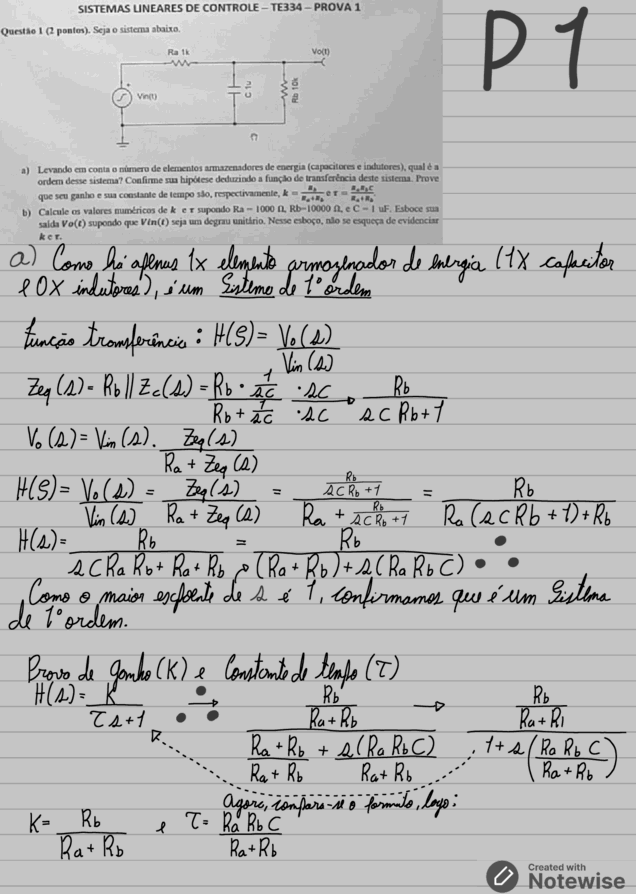 SISTEMAS LINEARES DE CONTROLE – TE334 – PROVA 1
P1
Questão 1 (2 pontos). Seja o sistema abaixo.
Ra 1k
Vo(t)
Vin(t)
C
Rb 10k
a) Levando em conta o número de elementos armazenadores de energia (capacitores e indutores), qual é a
ordem desse sistema? Confirme sua hipótese deduzindo a função de transferência deste sistema. Prove
que seu ganho e sua constante de tempo são, respectivamente, k = Rb/(Ra+Rb) e τ = RaRbC/(Ra+Rb).
b) Calcule os valores numéricos de k e τ supondo Ra = 1000 Ω, Rb=10000 Ω, e C = 1 uF. Esboce sua
saída Vo(t) supondo que Vin(t) seja um degrau unitário. Nesse esboço, não se esqueça de evidenciar
k e τ.
a) Como há apenas 1x elemento armazenador de energia (1x capacitor
e 0x indutores), é um Sistema de 1º ordem
Função transferência: H(S) = Vo(s)/Vin(s)
Zeq(s) = Rb || Zc(s) = (Rb · 1/sC)/(Rb + 1/sC) ·sC/·sC → Rb/(sCRb+1)
Vo(s) = Vin(s) · Zeq(s)/(Ra + Zeq(s))
H(S) = Vo(s)/Vin(s) = Zeq(s)/(Ra + Zeq(s)) = (Rb/(sCRb+1))/(Ra + Rb/(sCRb+1)) = Rb/(Ra(sCRb+1)+Rb)
H(s) = Rb/(sCRaRb + Ra + Rb) = Rb/((Ra+Rb)+s(RaRbC)) ∴
Como o maior expoente de s é 1, confirmamos que é um Sistema
de 1º ordem.
Prova de ganho (K) e Constante de tempo (τ)
H(s) = K/(τs+1) ∴ → (Rb/(Ra+Rb))/((Ra+Rb)/(Ra+Rb) + s(RaRbC)/(Ra+Rb)) → (Rb/(Ra+R1))/(1+s(RaRbC/(Ra+Rb)))
Agora, compara-se a formula, logo:
K = Rb/(Ra+Rb) e τ = RaRbC/(Ra+Rb)
Created with
Notewise